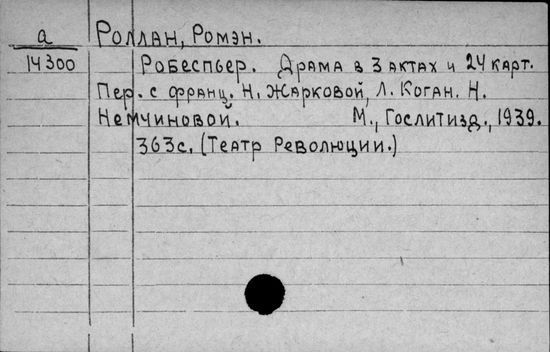 а
14300
Роллан, Ромэн.
Робеспьер. Драма в 3 актах и 24 карт.
Пер. с франц. Н. Жарковой, Л. Коган. Н.
Немчиновой. М., Гослитизд., 1939.
363с. (Театр Революции.)